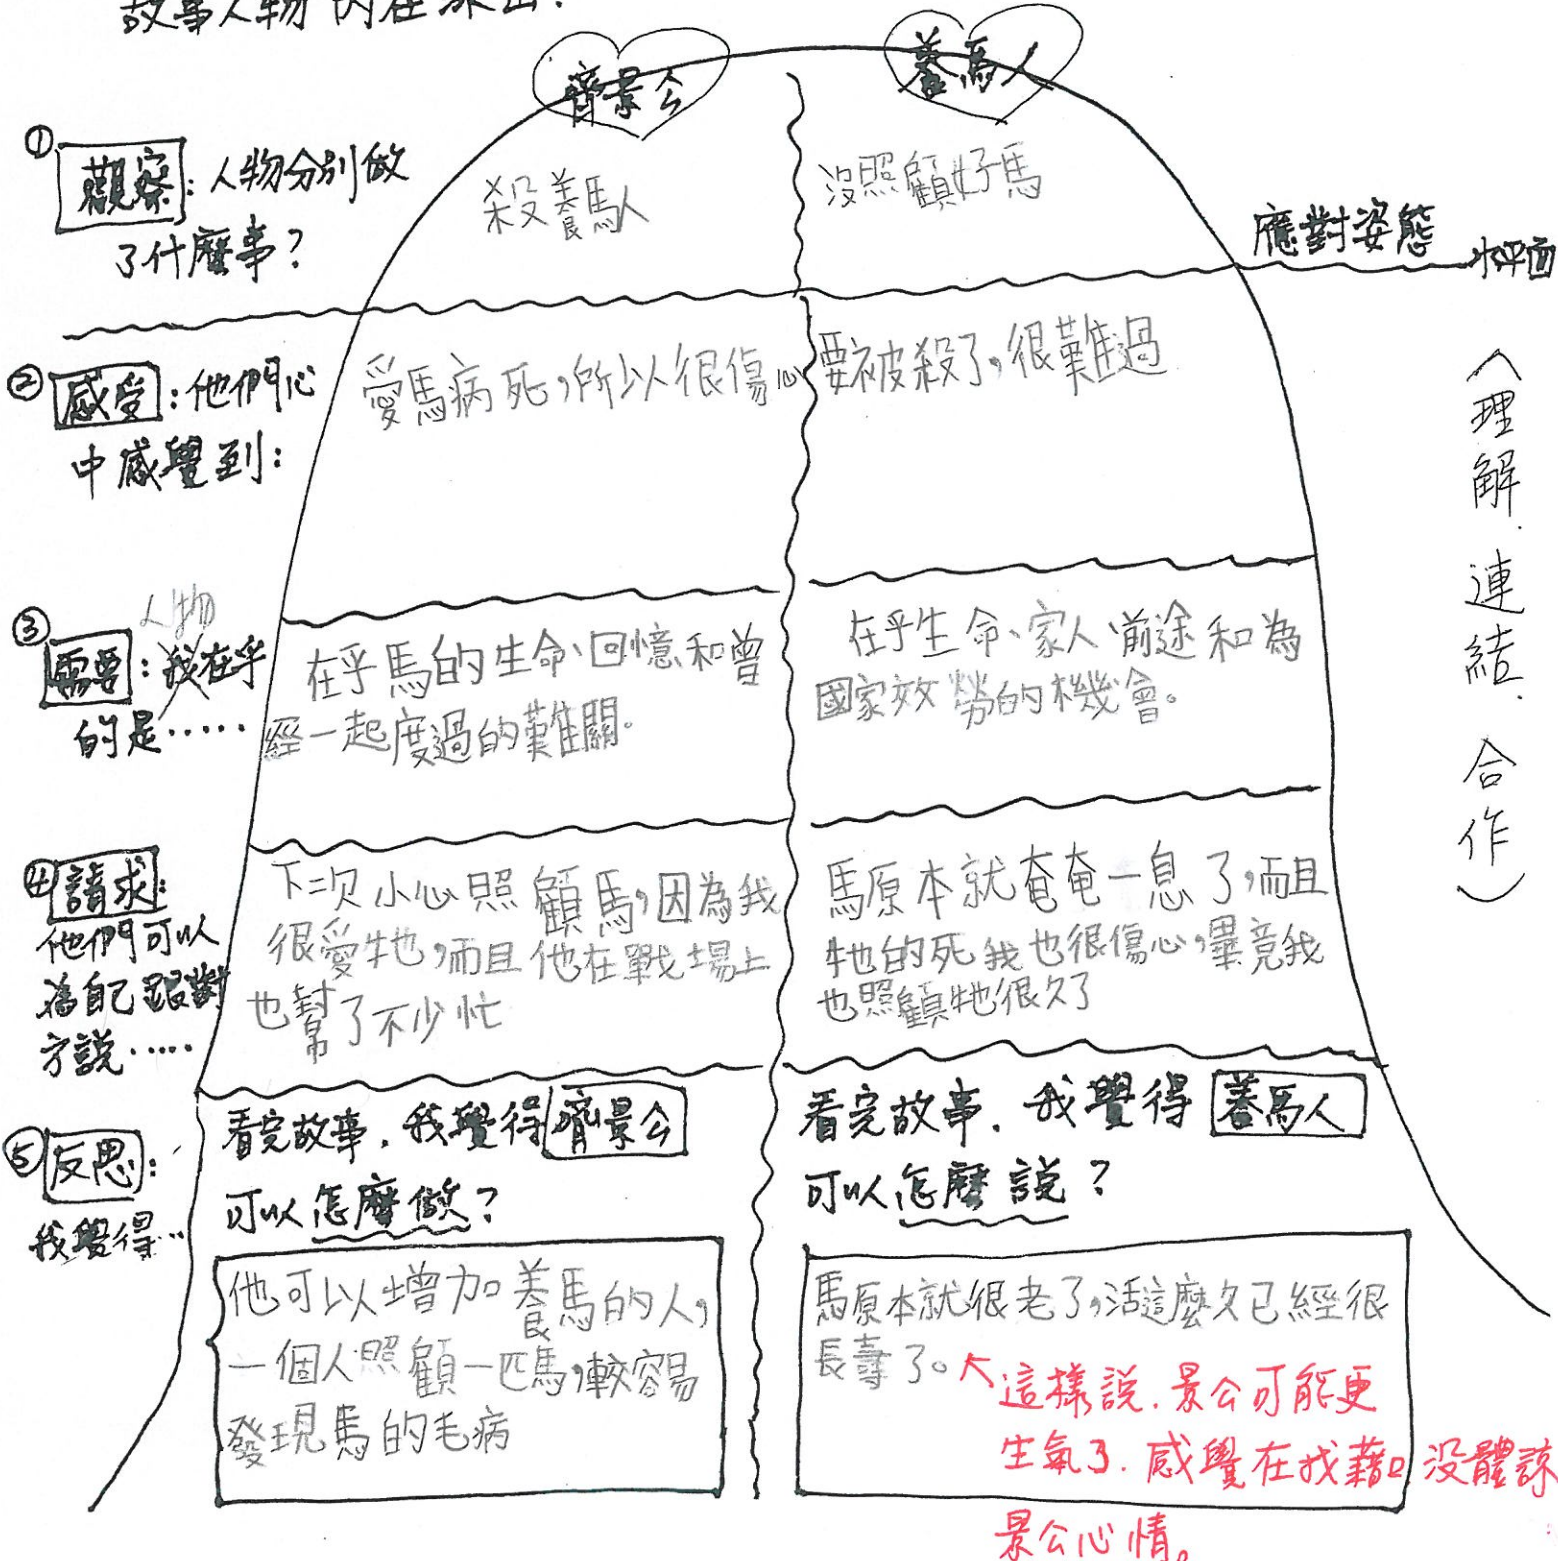 故事人物內在冰山:
齊景公
養馬人
①觀察:人物分別做
了什麼事?
殺養馬人
沒照顧好馬
應對姿態
水平面
②感受:他們心
中感覺到:
愛馬病死,所以很傷心
要被殺了,很難過
人物
③需要:我在乎
的是……
在乎馬的生命、回憶和曾
經一起度過的難關。
在乎生命、家人、前途和為
國家效勞的機會。
④請求:
他們可以
為自己跟對
方說……
下次小心照顧馬,因為我
很愛牠,而且他在戰場上
也幫了不少忙
馬原本就奄奄一息了,而且
牠的死我也很傷心,畢竟我
也照顧牠很久了
⑤反思:
我覺得…
看完故事,我覺得齊景公
可以怎麼做?
他可以增加養馬的人,
一個人照顧一匹馬,較容易
發現馬的毛病
看完故事,我覺得養馬人
可以怎麼說?
馬原本就很老了,活這麼久已經很
長壽了。
這樣說,景公可能更
生氣了.感覺在找藉口沒體諒
景公心情。
〈理解.連結.合作〉